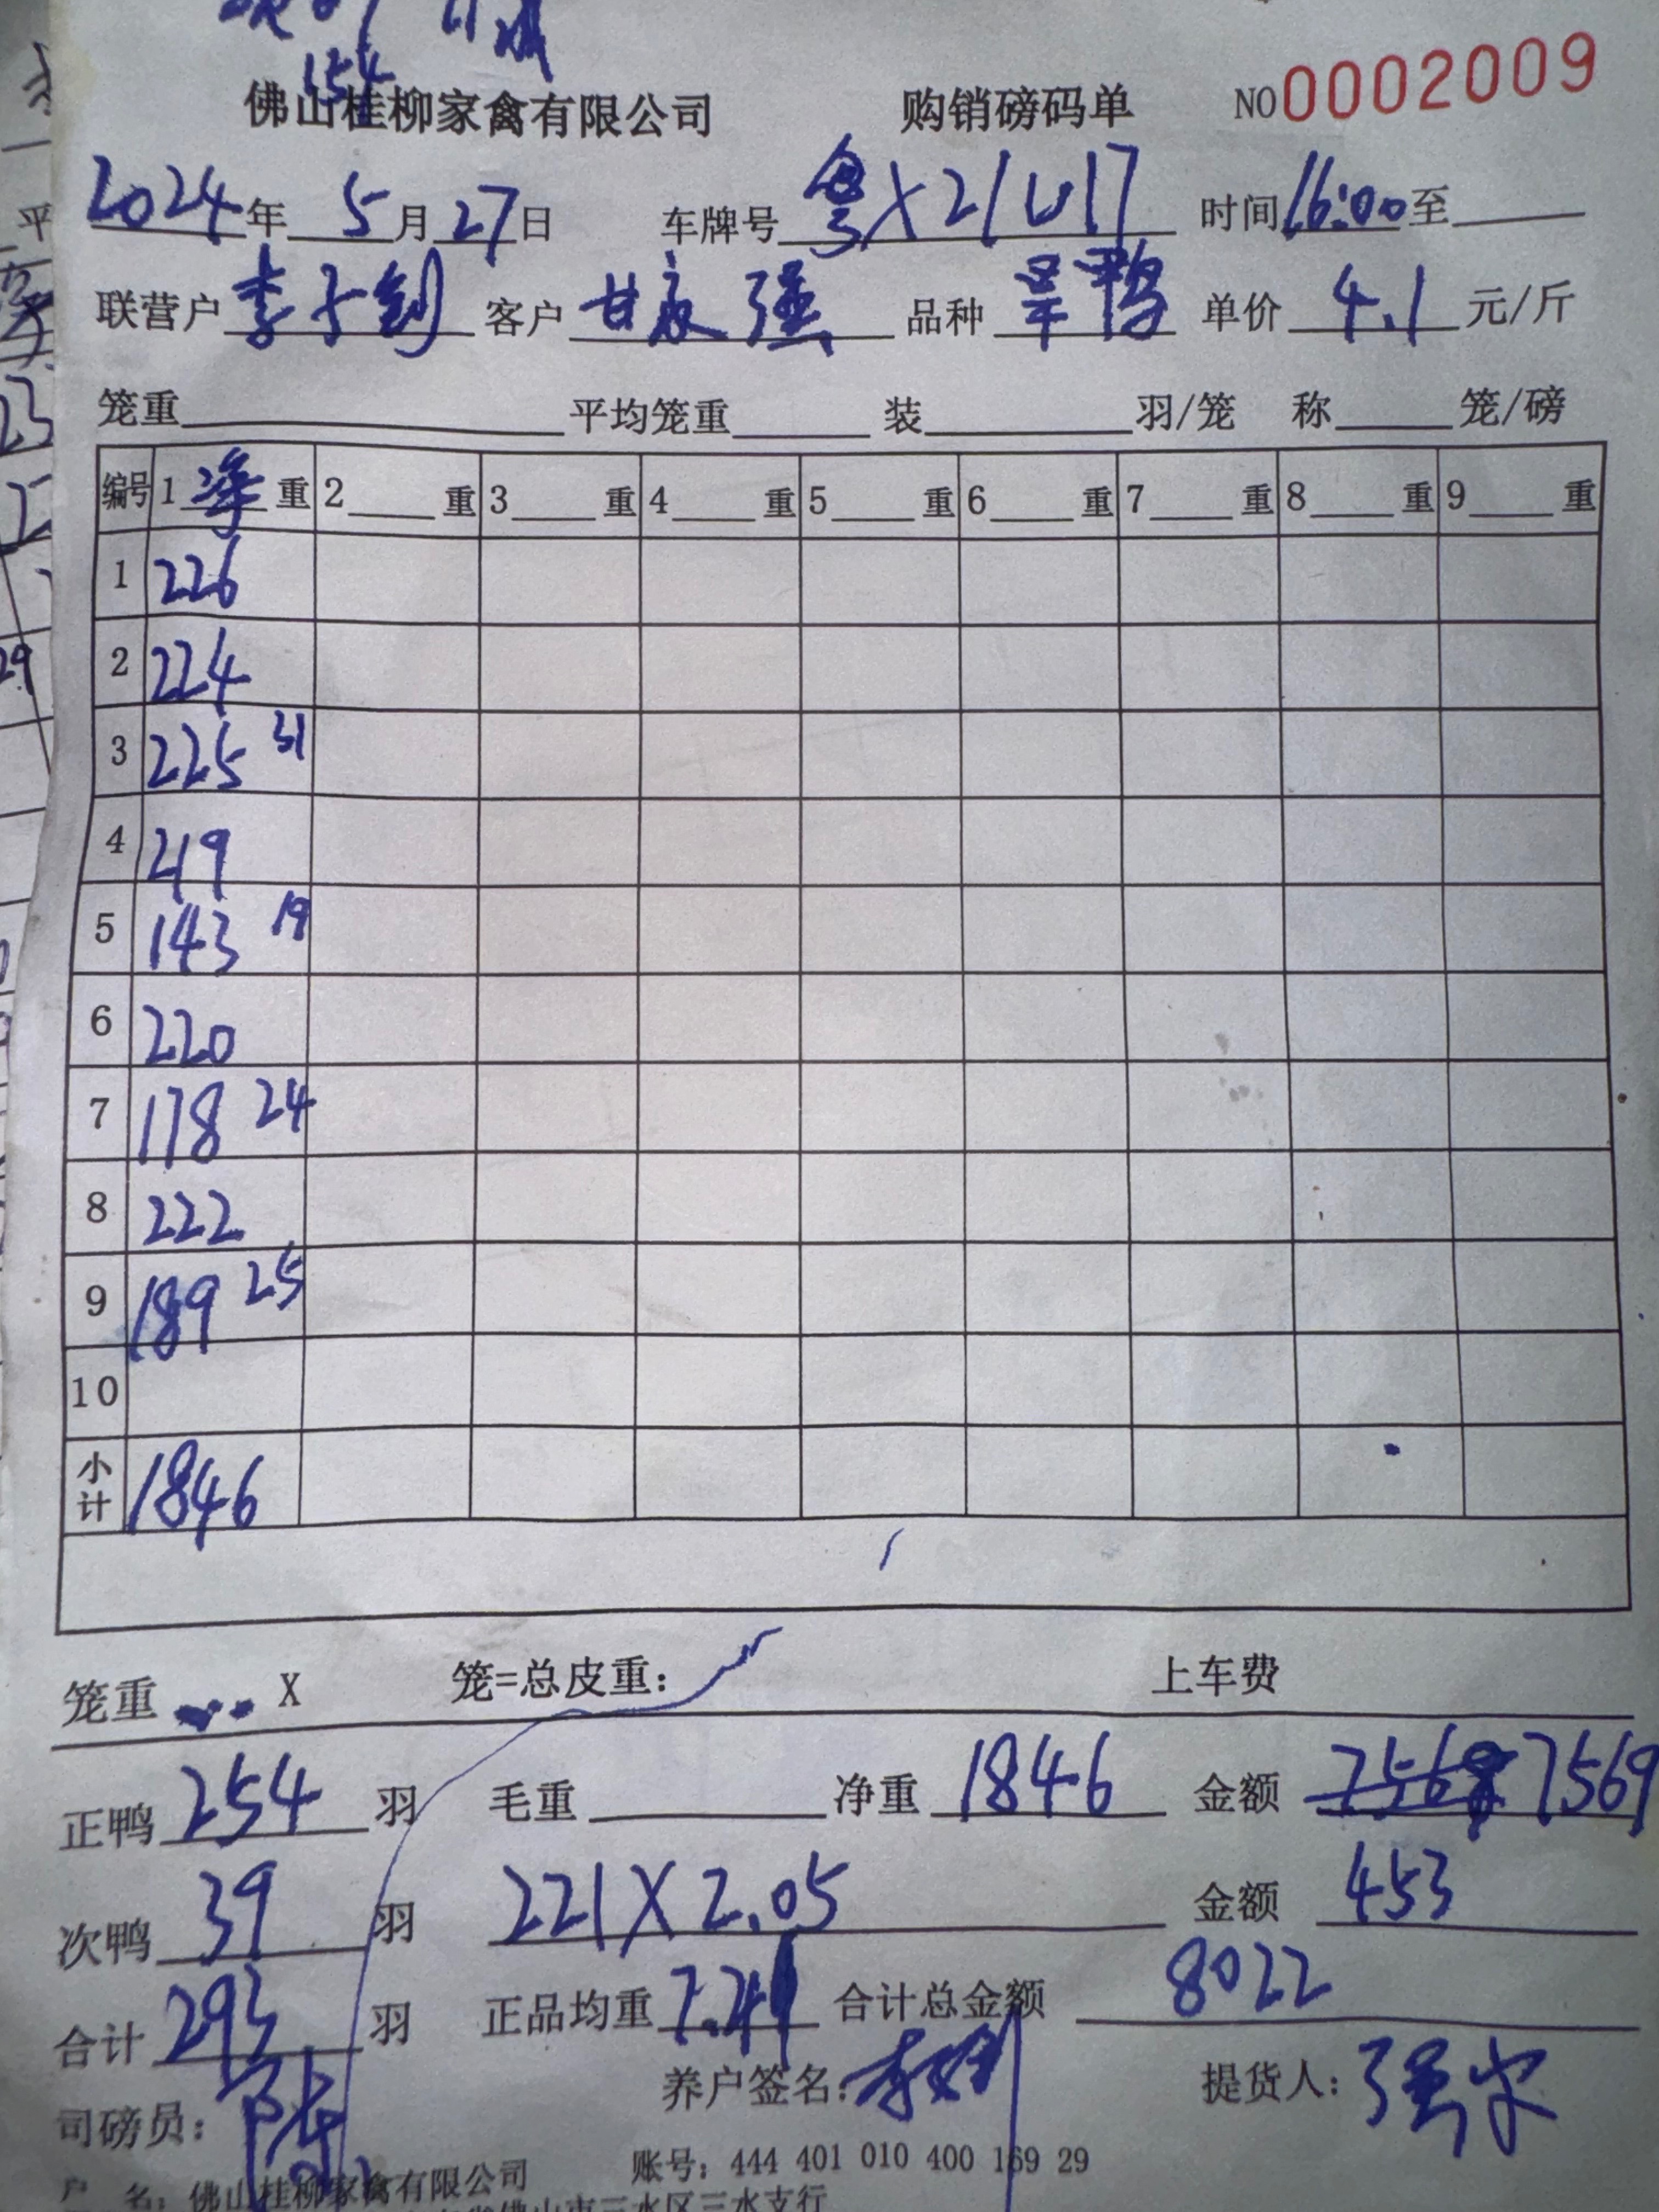 154
佛山桂柳家禽有限公司 购销磅码单 NO0002009
2024年 5月27日 车牌号 粤X21U17 时间16:00至
联营户 李子钊 客户 甘庆强 品种 旱鸭 单价 4.1 元/斤
笼重 平均笼重 装 羽/笼 称 笼/磅
编号 1 净 重 2 重 3 重 4 重 5 重 6 重 7 重 8 重 9 重
1 226
2 224
3 225 31
4 219
5 143 19
6 220
7 178 24
8 222
9 189 25
10
小计 1846
笼重 X 笼=总皮重： 上车费
正鸭 254 羽 毛重 净重 1846 金额 7569
次鸭 39 羽 221X2.05 金额 453
合计 293 羽 正品均重 7.2 合计总金额 8022
司磅员： 养户签名： 提货人：
户 名：佛山桂柳家禽有限公司 账号：444 401 010 400 169 29
佛山市三水区三水支行